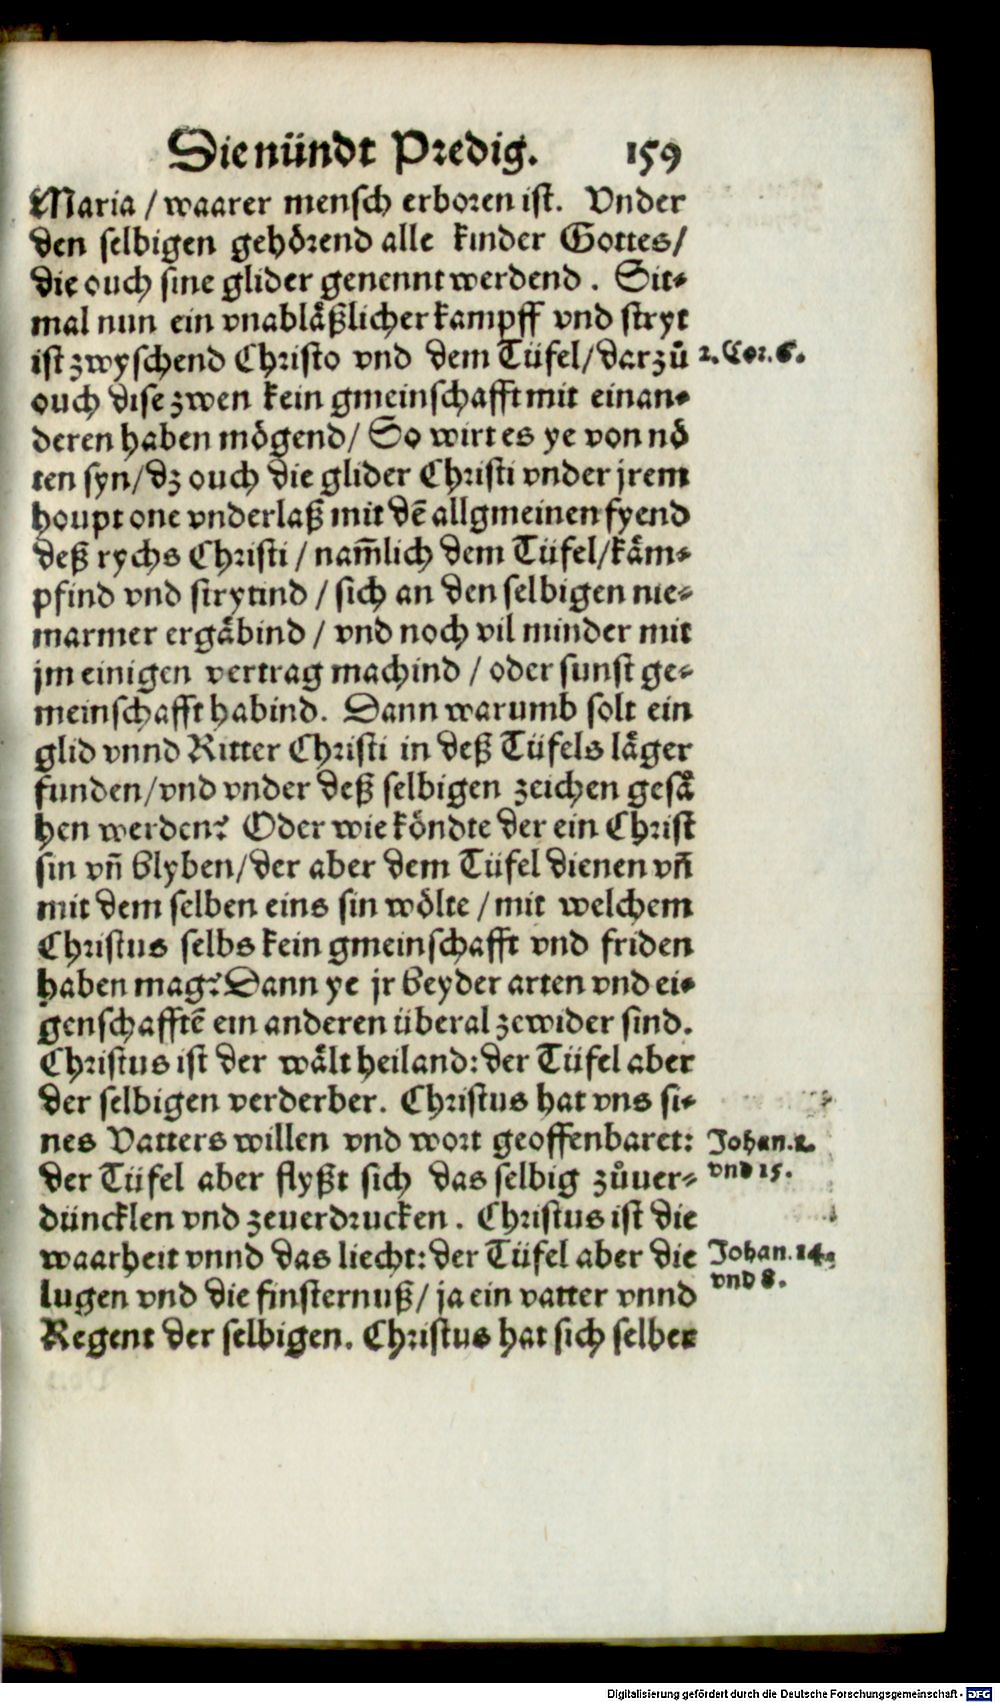 Die nündt Predig. 159
Maria / waarer mensch erboren ist. Vnder
den selbigen gehörend alle kinder Gottes/
die ouch sine glider genennt werdend. Sit-
mal nun ein vnabläßlicher kampff vnd stryt
ist zwyschend Christo vnd dem Tüfel/darzů
2. Cor. 6.
ouch dise zwen kein gmeinschafft mit einan-
deren haben mögend/ So wirt es ye von nö
ten syn/dz ouch die glider Christi vnder jrem
houpt one vnderlaß mit dē allgmeinen fyend
deß rychs Christi / nam̄lich dem Tüfel/käm-
pfind vnd strytind / sich an den selbigen nie-
marmer ergäbind / vnd noch vil minder mit
jm einigen vertrag machind / oder sunst ge-
meinschafft habind. Dann warumb solt ein
glid vnnd Ritter Christi in deß Tüfels läger
funden/vnd vnder deß selbigen zeichen gesä
hen werden? Oder wie köndte der ein Christ
sin vn̄ blyben/der aber dem Tüfel dienen vn̄
mit dem selben eins sin wölte / mit welchem
Christus selbs kein gmeinschafft vnd friden
haben mag? Dann ye jr beyder arten vnd ei-
genschafftē ein anderen überal zewider sind.
Christus ist der wält heiland: der Tüfel aber
der selbigen verderber. Christus hat vns si-
nes Vatters willen vnd wort geoffenbaret:
Johan. 1.
der Tüfel aber flyßt sich das selbig zůuer-
vnd 15.
düncklen vnd zeuerdrucken. Christus ist die
waarheit vnnd das liecht: der Tüfel aber die
Johan. 14.
lugen vnd die finsternuß/ ja ein vatter vnnd
vnd 8.
Regent der selbigen. Christus hat sich selber
Digitalisierung gefördert durch die Deutsche Forschungsgemeinschaft - DFG